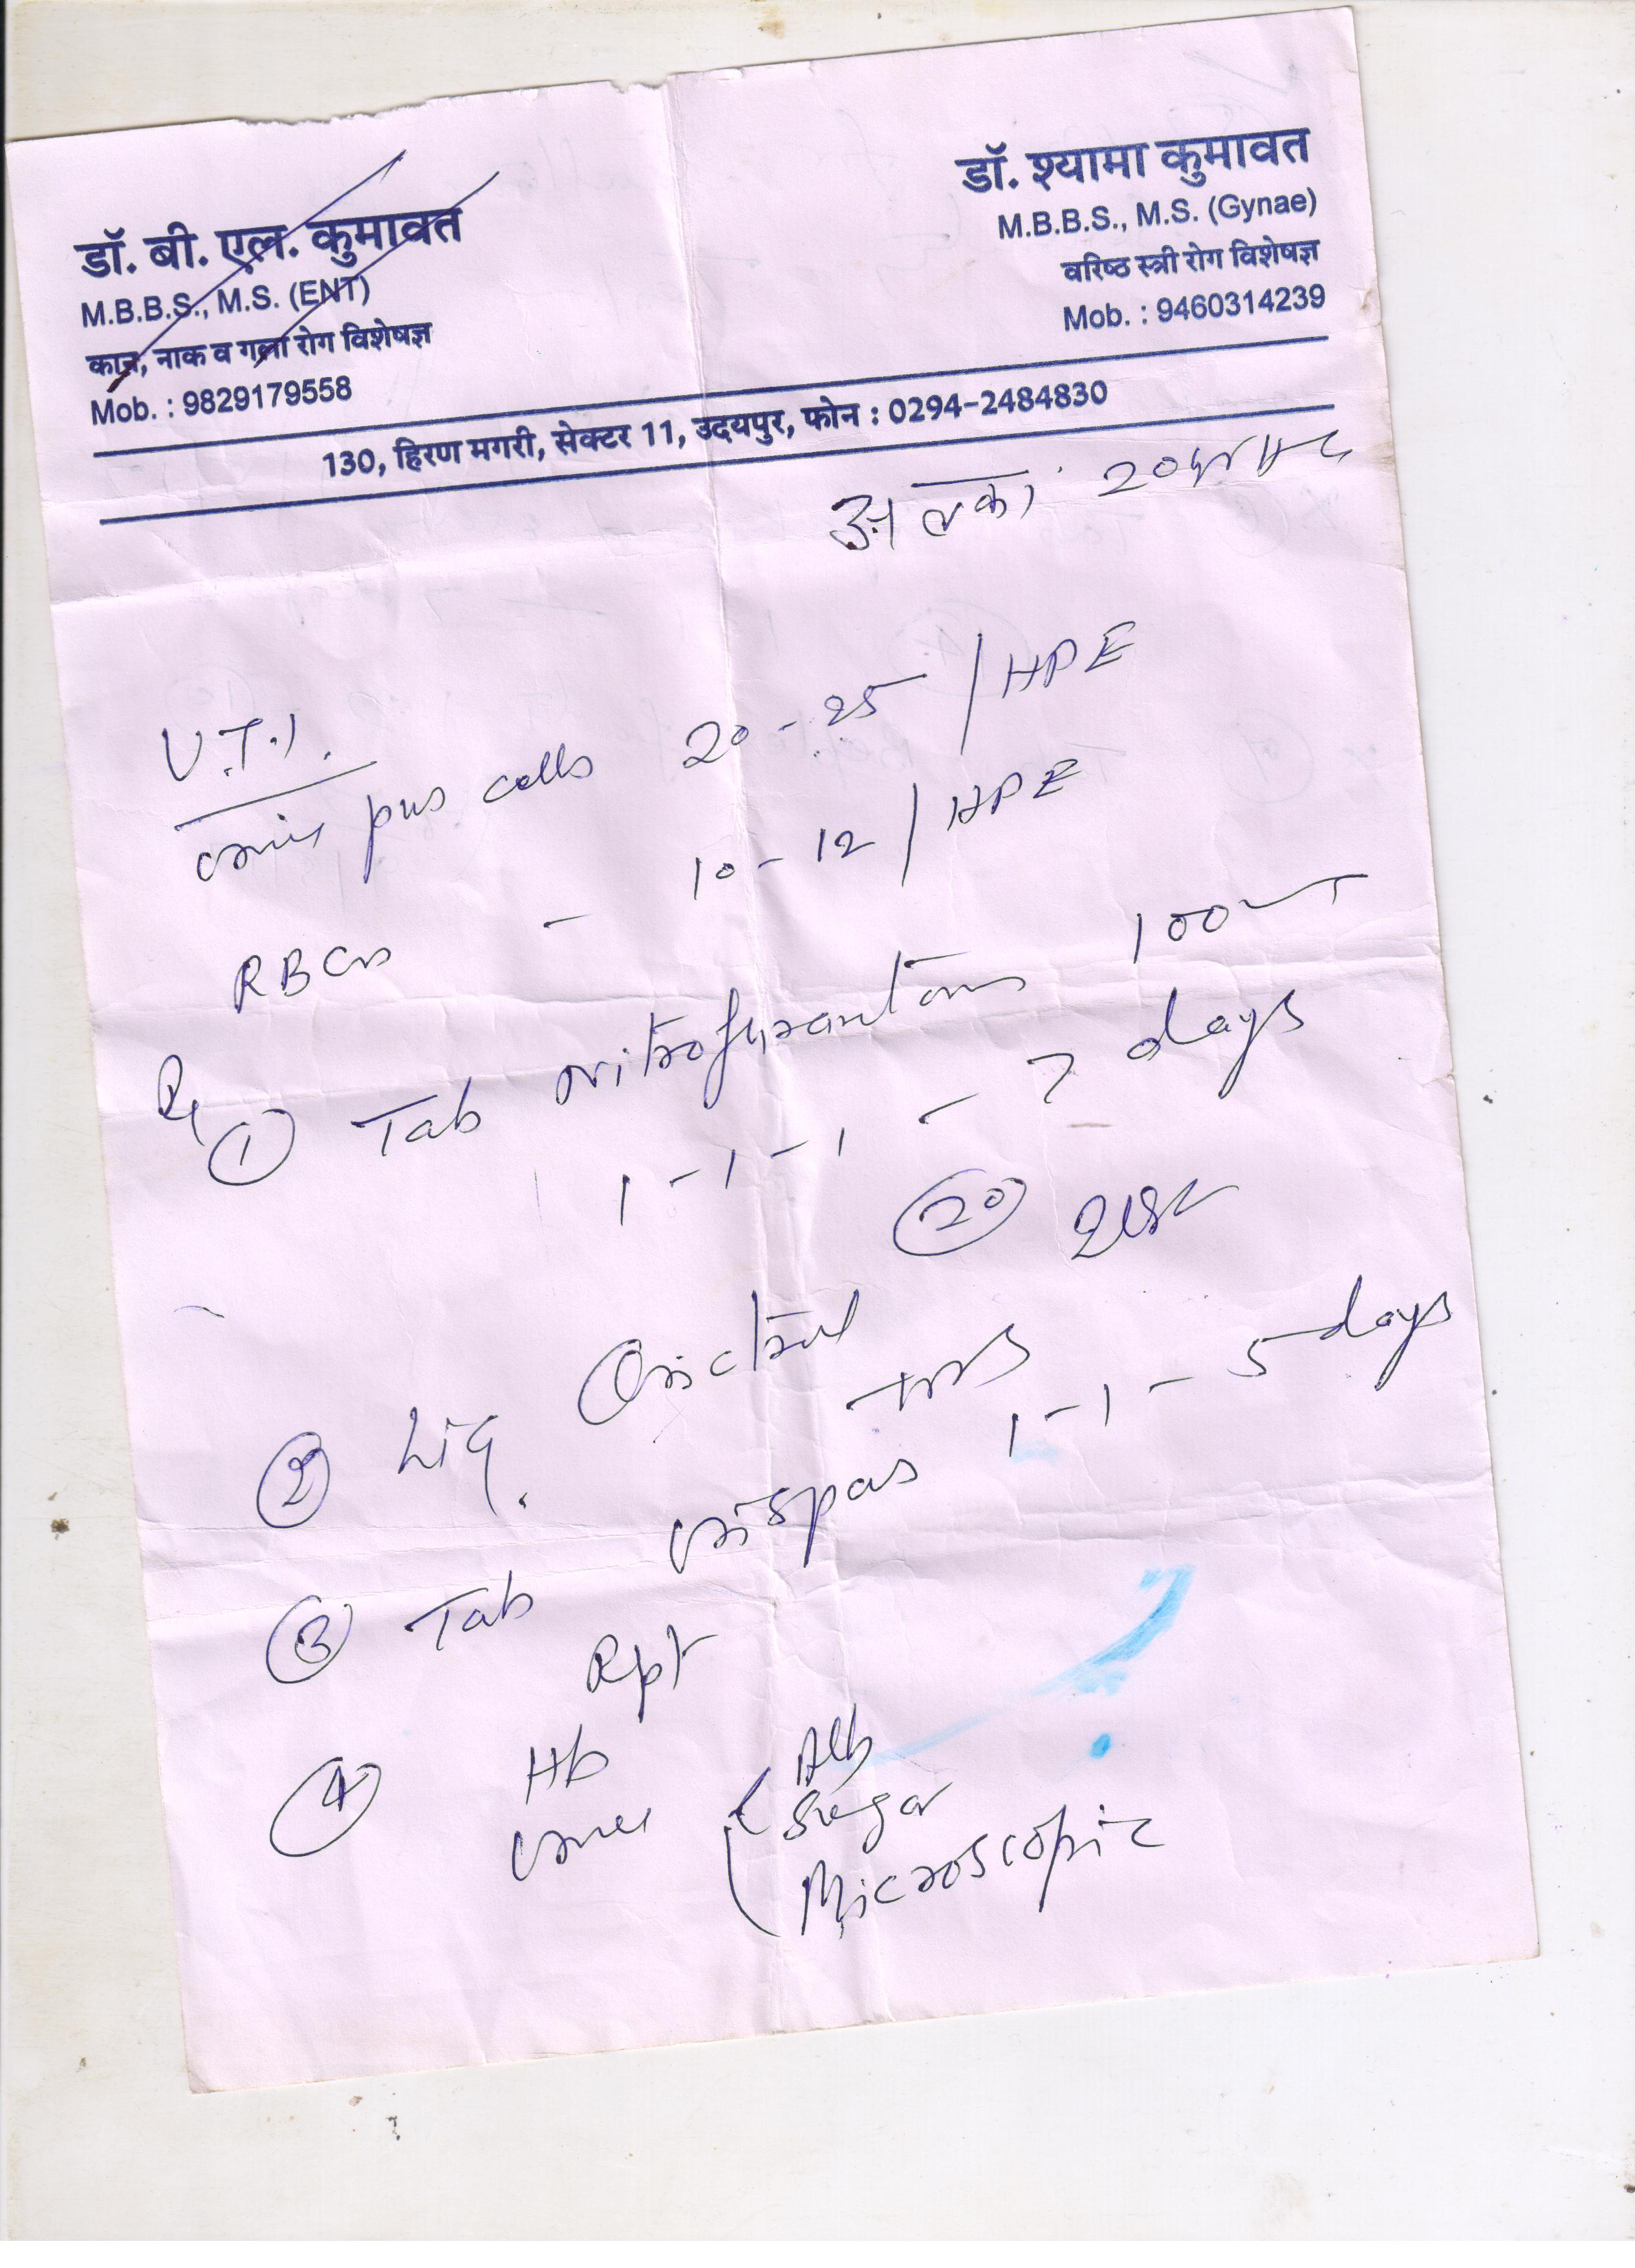 डॉ. बी. एल. कुमावत
M.B.B.S., M.S. (ENT)
कान, नाक व गला रोग विशेषज्ञ
Mob. : 9829179558
डॉ. श्यामा कुमावत
M.B.B.S., M.S. (Gynae)
वरिष्ठ स्त्री रोग विशेषज्ञ
Mob. : 9460314239
130, हिरण मगरी, सेक्टर 11, उदयपुर, फोन : 0294-2484830
अलका
U.T.I.
pus cells 20-25 / HPF
RBCs - 10-12 / HPF
Rx
① Tab nitrofurantoin 100
1-1-1 - 7 days
⑳
② Liq.
③ Tab 1-1- 5 days
Rpt
④ Hb
Urine Alb
Sugar
Microscopic